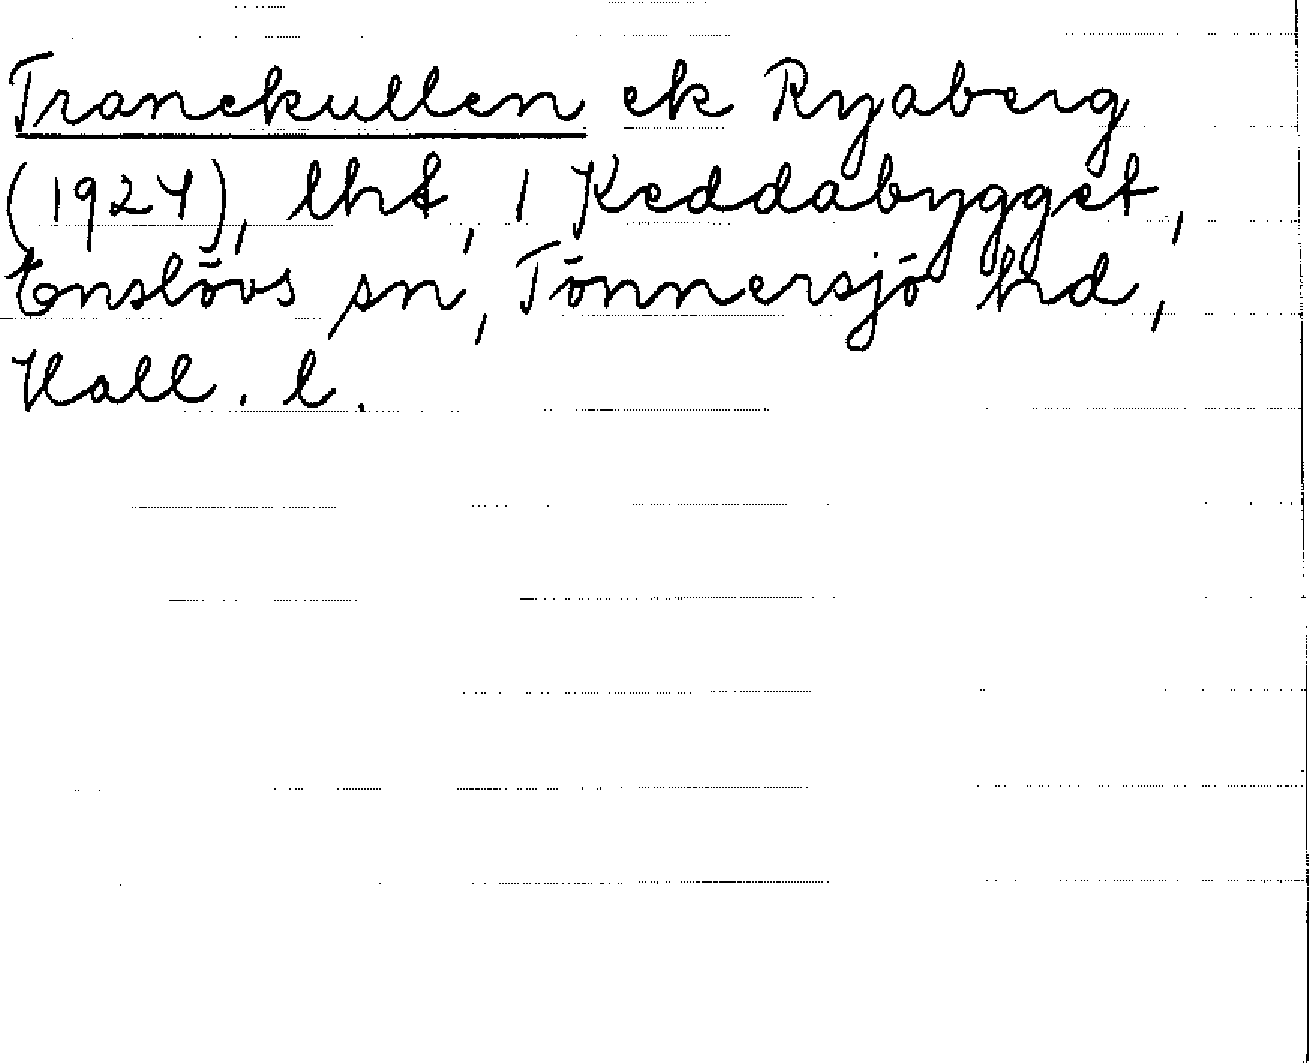 Tranekullen ek Ryaberg
(1924), lht, 1 Keddabygget,
Enslövs sn, Tönnersjö hd,
Hall. l.